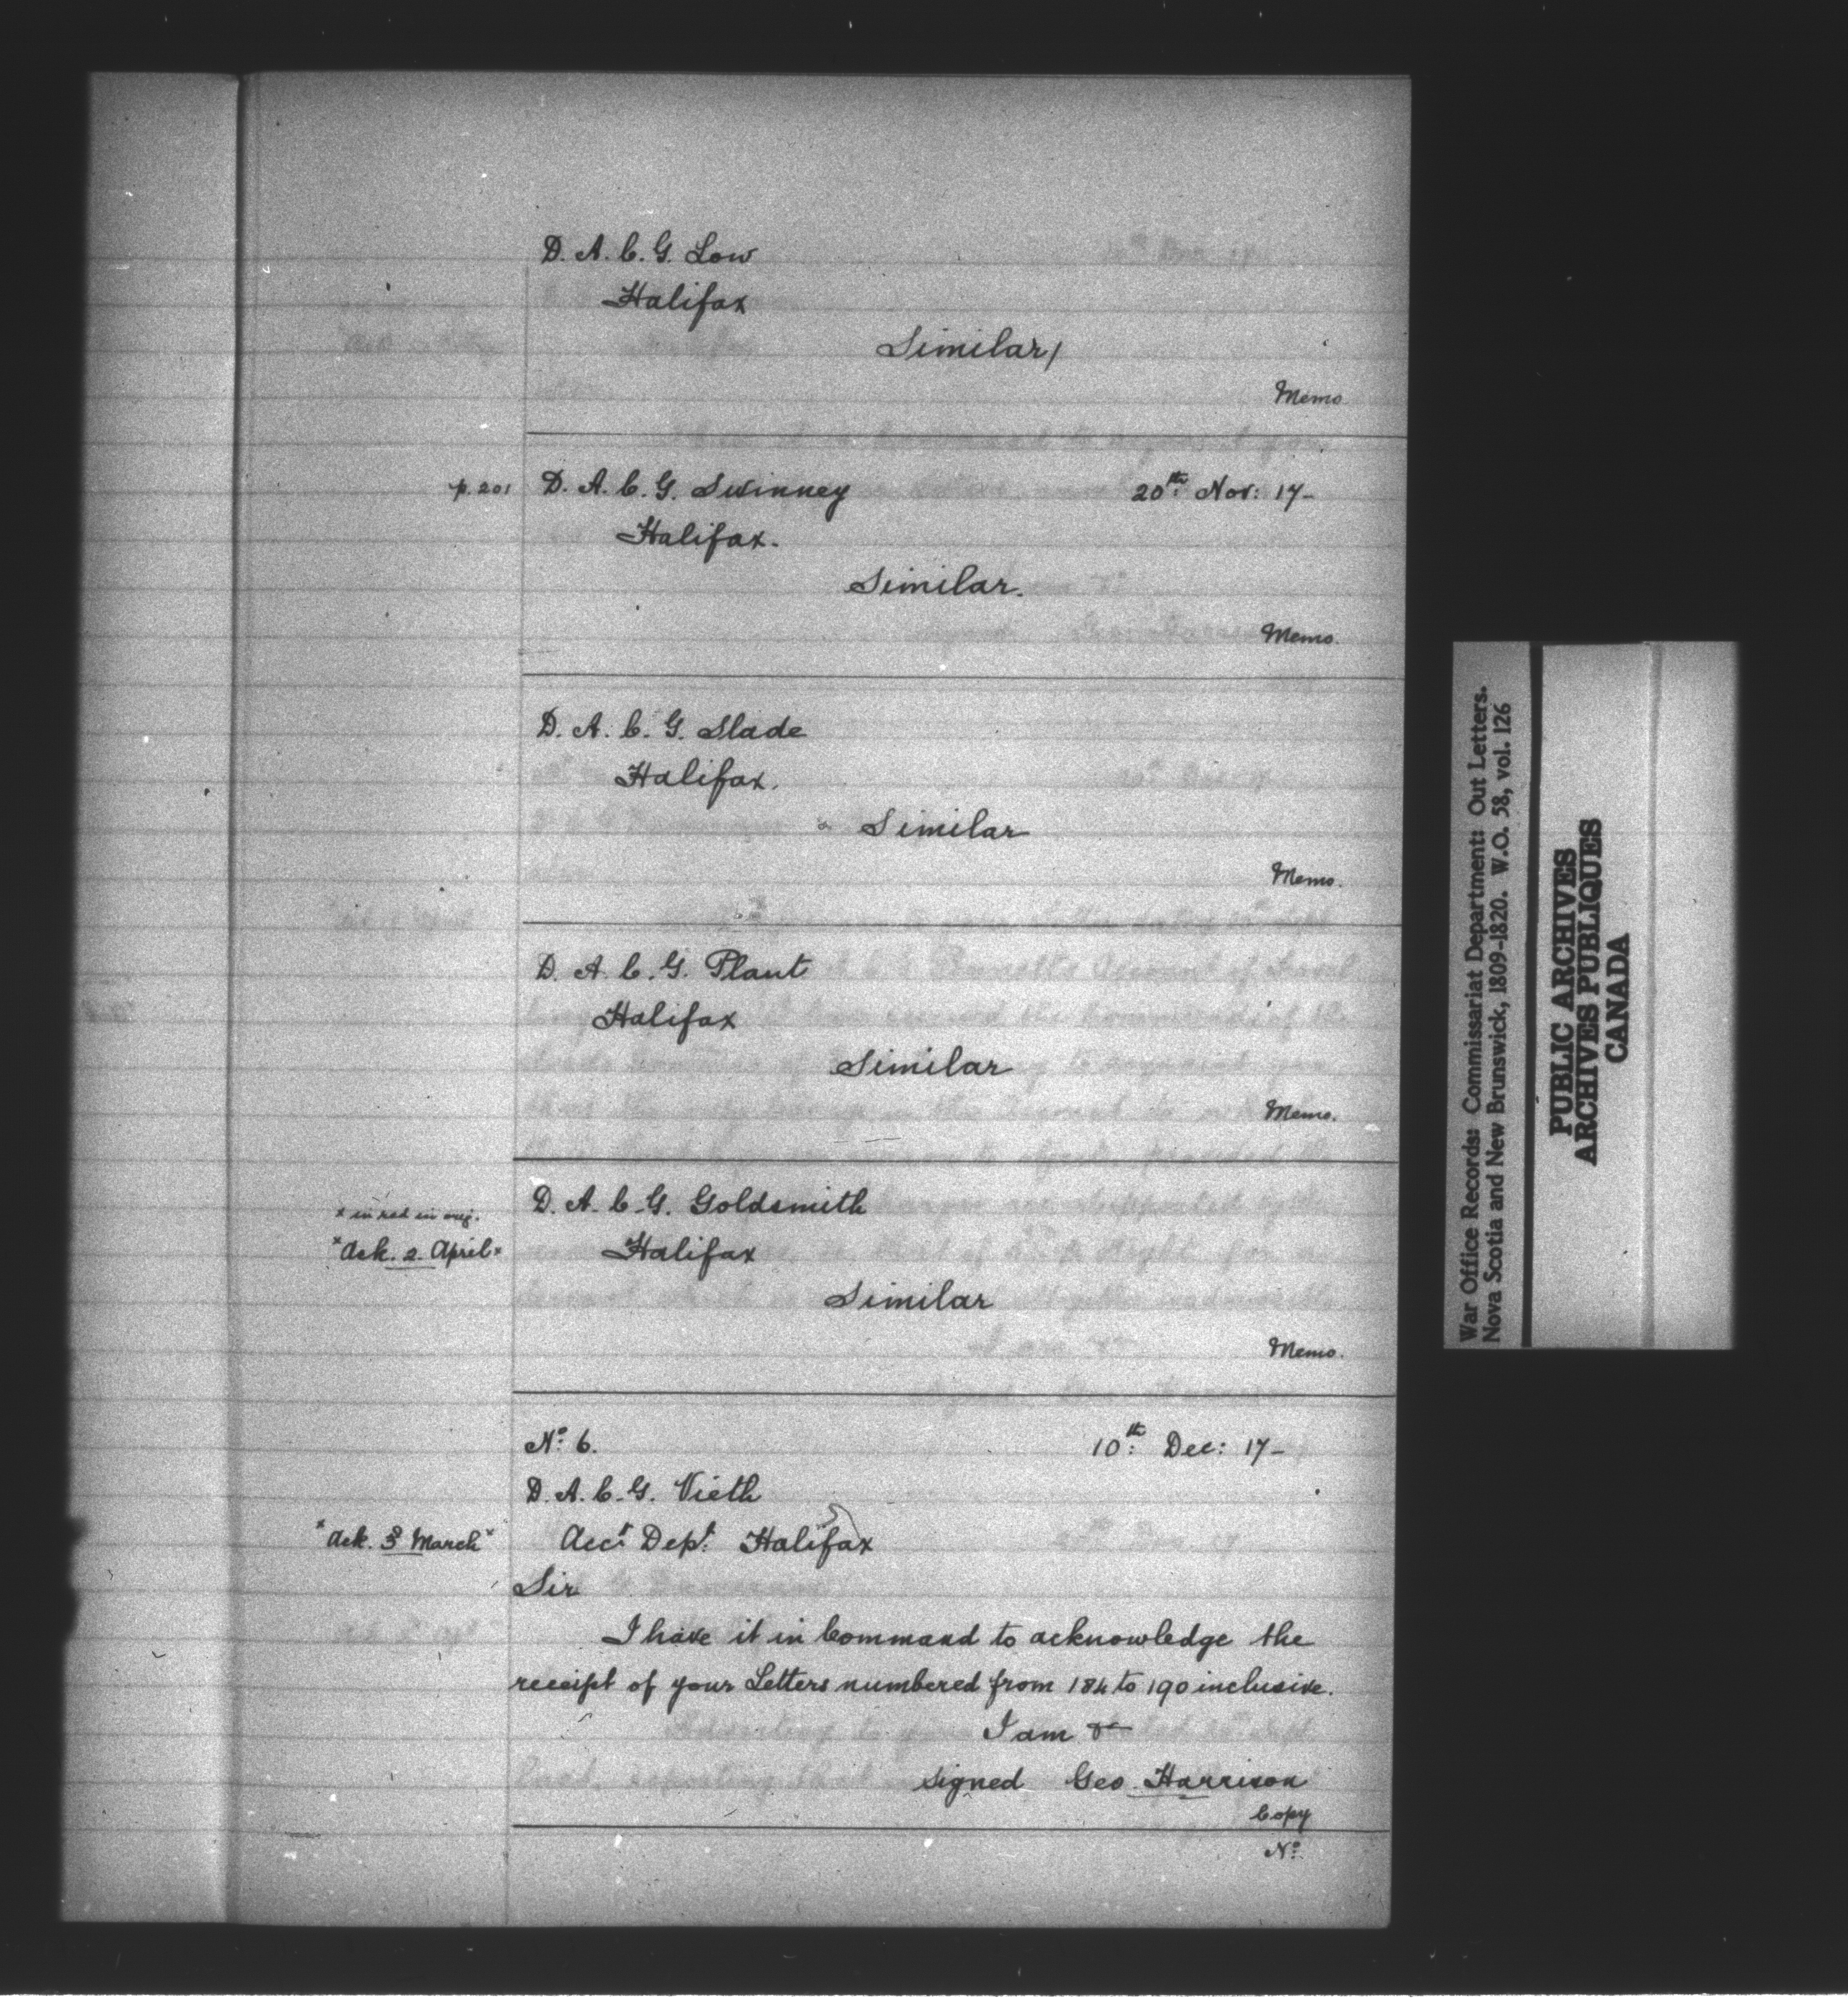 D. A. C. G. Low
Halifax
Similar/
Memo
p. 201 D. A. C. G. Swinney 20th Nov: 17-
Halifax.
Similar.
Memo.
D. A. C. G. Slade
Halifax.
Similar
Memo.
D. A. C. G. Plant
Halifax
Similar
Memo.
D. A. C. G. Goldsmith
x in red in orig.
"Ack. 2. April" Halifax
Similar
Memo.
No. 6. 10th: Dec: 17-
D. A. C. G. Vieth
"Ack. 3 March" Acct. Dept. Halifax
Sir
I have it in Command to acknowledge the
receipt of your Letters numbered from 184 to 190 inclusive.
I am &c
signed Geo. Harrison
Copy
No.
War Office Records: Commissariat Department: Out Letters.
Nova Scotia and New Brunswick, 1809-1820. W.O. 58, vol. 126
PUBLIC ARCHIVES
ARCHIVES PUBLIQUES
CANADA